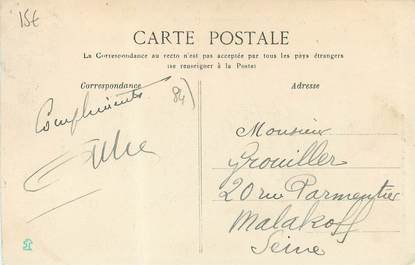 15€
CARTE POSTALE
La Correspondance au recto n'est pas acceptée par tous les pays étrangers
(se renseigner à la Poste)
Correspondance
Adresse
84)
Compliments
Monsieur
Grouiller
20 rue Parmentier
Malakoff
Seine